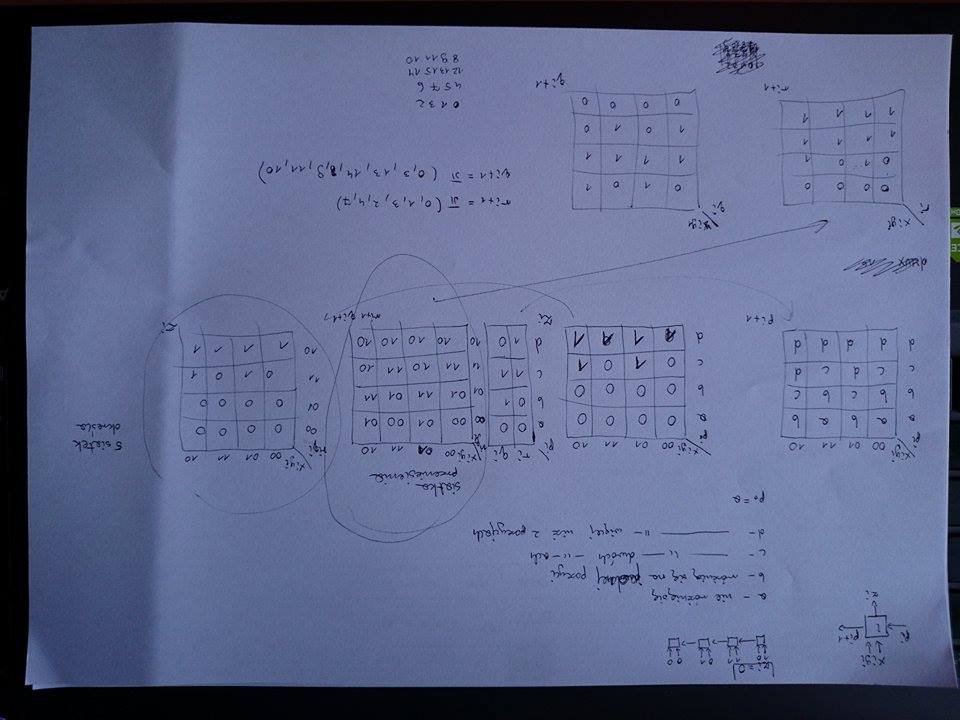 xi yi
pi pi+1
i
zi
zi=0
10 11 01 00
a - nie różnią się
b - różnią się na jednej pozycji
c - —— 11 —— dwóch -11-ach
d - —— 11 - więcej niż 2 pozycjach
p0 = a
siatka
przeniesienia
5 siatek
określa
pi xiyi 00 01 11 10
a a b a b
b b c b c
c c d c d
d d d d d
pi+1
pi xiyi 00 01 11 10
a 0 0 0 0
b 0 0 0 0
c 0 1 0 1
d 1 1 1 1
zi
pi ri qi
a 0 0
b 0 1
c 1 1
d 1 0
xiyi 00 01 11 10
00 00 01 00 01
01 01 11 01 11
11 11 10 11 10
10 10 10 10 10
ri+1 qi+1
riqi xiyi 00 01 11 10
00 0 0 0 0
01 0 0 0 0
11 0 1 0 1
10 1 1 1 1
zi
ri xiyi
0 0 0 0
0 1 0 1
1 1 1 1
1 1 1 1
ri+1
qi xiyi
0 1 0 1
1 1 1 1
1 0 1 0
0 0 0 0
qi+1
ri+1 = π (0, 1, 3, 2, 4, 7)
qi+1 = π (0, 3, 13, 14, 8, 9, 11, 10)
0 1 3 2
4 5 7 6
12 13 15 14
8 9 11 10